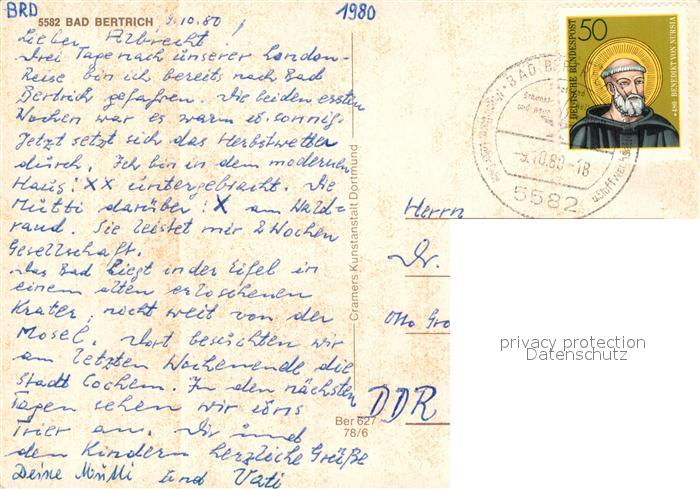 BRD
5582 BAD BERTRICH 9.10.80
1980
Lieber Albrecht!
Drei Tage nach unserer London-
Reise bin ich bereits nach Bad
Bertrich gefahren. Die beiden ersten
Wochen war es warm u. sonnig.
Jetzt setzt sich das Herbstwetter
durch. Ich bin in dem modernen
Haus: XX untergebracht. Die
Mutti darüber: X am Wald=
rand. Sie leistet mir 2 Wochen
Gesellschaft.
Das Bad liegt in der Eifel in
einem alten erloschenen
Krater, nicht weit von der
Mosel. Dort besuchten wir
am letzten Wochenende die
Stadt Cochem. In den nächsten
Tagen sehen wir uns
Trier an. Dir und
den Kindern herzliche Grüße
Deine Mutti und Vati
Cramers Kunstanstalt Dortmund
Ber 627
78/6
50
DEUTSCHE BUNDESPOST
*480 BENEDIKT VON NURSIA
BAD BER
-9.10.80-18
5582
Herrn
Dr.
Otto Gro
DDR
privacy protection
Datenschutz